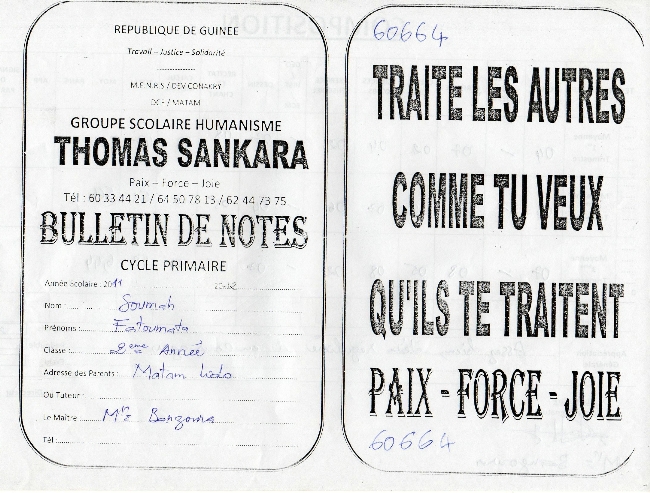 REPUBLIQUE DE GUINEE
Travail – Justice – Solidarité
---------------
M.E.N.R.S / DEV CONAKRY
DCE / MATAM
GROUPE SCOLAIRE HUMANISME
THOMAS SANKARA
Paix – Force – Joie
Tél : 60 33 44 21 / 64 50 78 13 / 62 44 73 75
BULLETIN DE NOTES
CYCLE PRIMAIRE
Année Scolaire : 2011 2012
Nom : Soumah
Prénoms : Fatoumata
Classe : 2eme Année
Adresse des Parents : Matam
Ou Tuteur :
Le Maître : Mr Bangoura
Tél :
60664
TRAITE LES AUTRES
COMME TU VEUX
QU'ILS TE TRAITENT
PAIX - FORCE - JOIE
60664